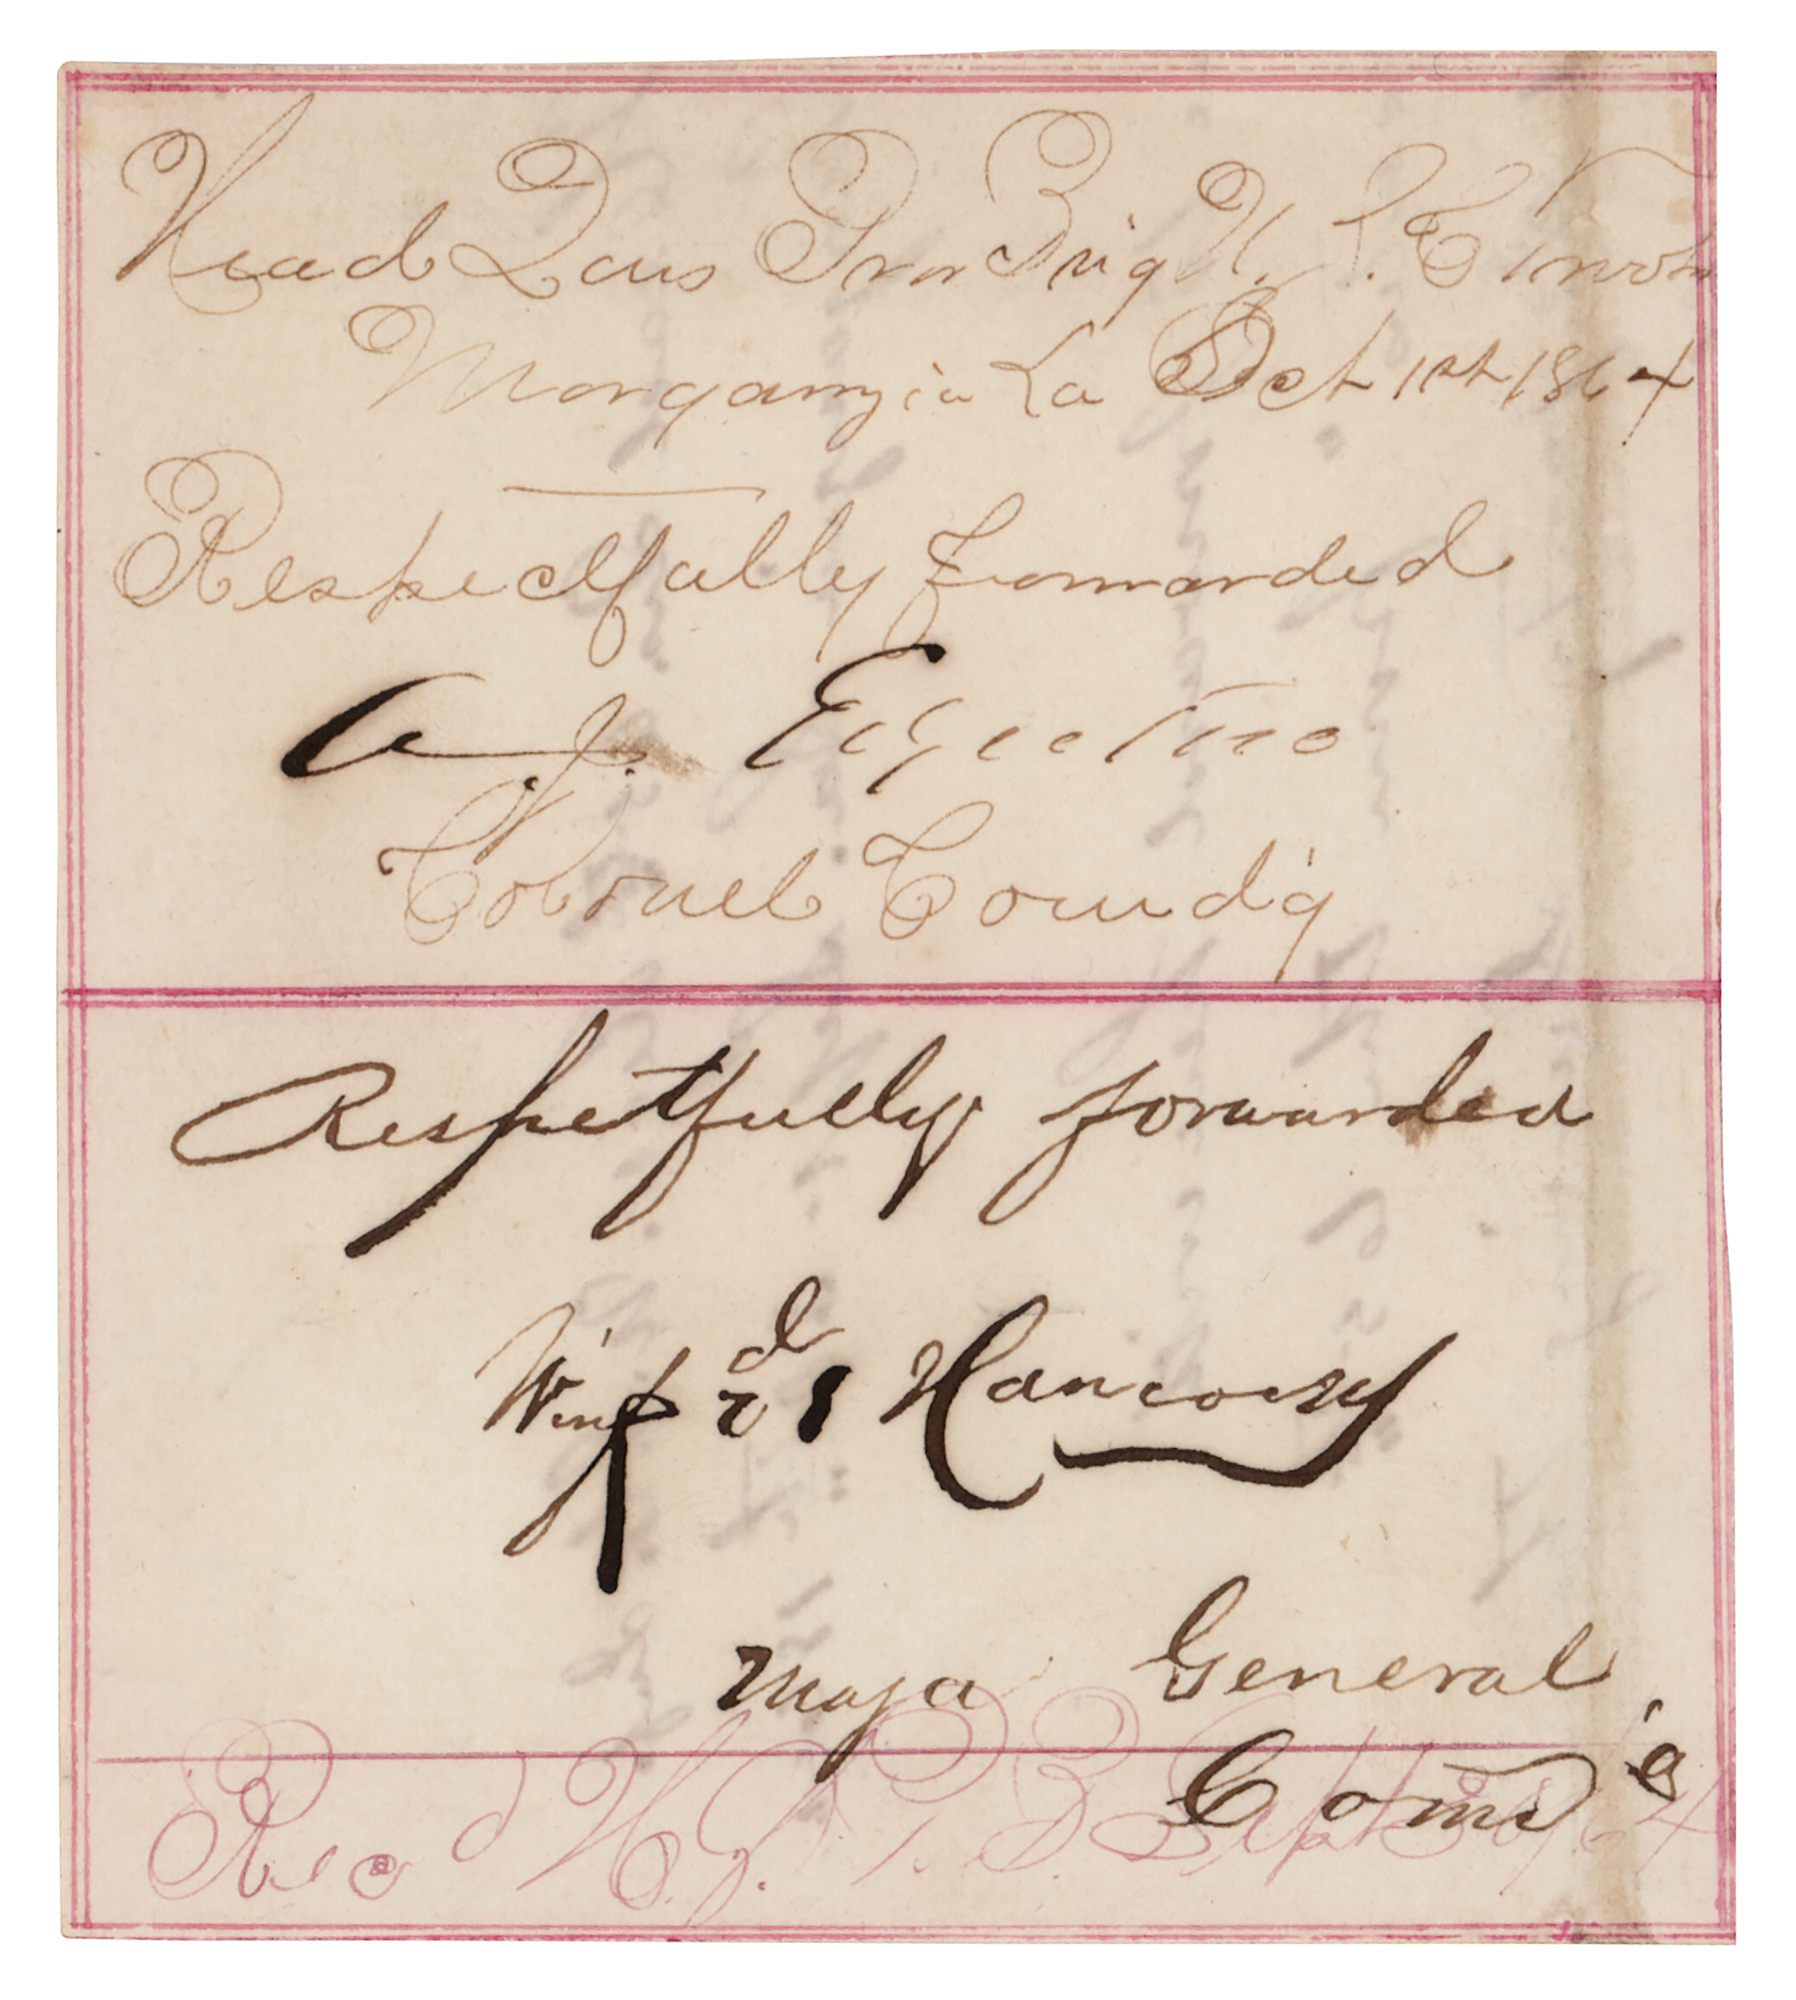 Head Qurs Prov Brig U. S. C Troo
Morganzia La Oct 1st 1864
Respectfully forwarded
A. J. Edgerton
Colonel Comd'g
Respetfully forwarded
Winf'd S Hancock
Maja General
Comd'g
Rec'd H. Q. P. B. Sept 30 /64